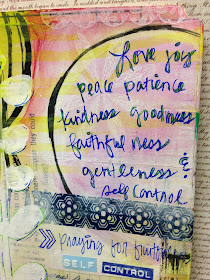 Love joy
peace patience
kindness goodness
faithfulness
gentleness &
self control
praying for
SELF CONTROL